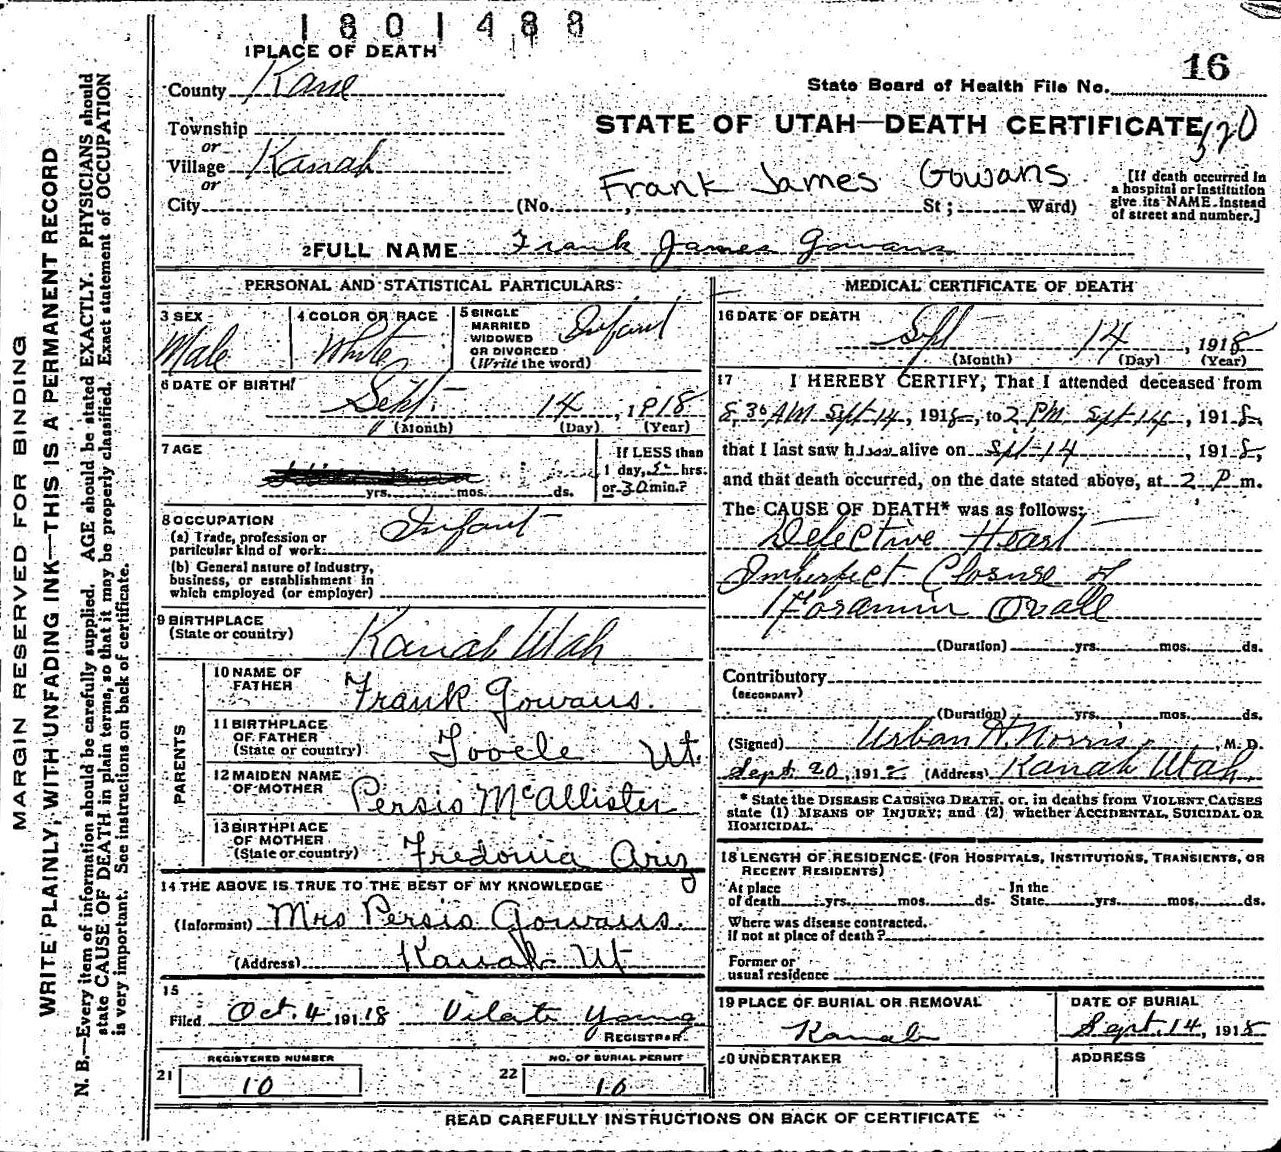 1801488
1 PLACE OF DEATH
County Kane
State Board of Health File No. 16
Township
or
STATE OF UTAH—DEATH CERTIFICATE 520
Village Kanab
or
Frank James Gowans
City (No. , St ; Ward)
[If death occurred in
a hospital or institution
give its NAME instead
of street and number.]
2 FULL NAME Frank James Gowans
PERSONAL AND STATISTICAL PARTICULARS
3 SEX Male
4 COLOR OR RACE White
5 SINGLE
MARRIED
WIDOWED
OR DIVORCED
(Write the word) Infant
6 DATE OF BIRTH
Sept. 14, 1918
(Month) (Day) (Year)
7 AGE
yrs. mos. ds.
If LESS than
1 day, 5 hrs.
or 30 min.?
8 OCCUPATION Infant
(a) Trade, profession or
particular kind of work
(b) General nature of industry,
business, or establishment in
which employed (or employer)
9 BIRTHPLACE
(State or country) Kanab Utah
PARENTS
10 NAME OF
FATHER Frank Gowans.
11 BIRTHPLACE
OF FATHER
(State or country) Tooele Ut.
12 MAIDEN NAME
OF MOTHER Persis McAllister
13 BIRTHPLACE
OF MOTHER
(State or country) Fredonia Ariz
14 THE ABOVE IS TRUE TO THE BEST OF MY KNOWLEDGE
(Informant) Mrs Persis Gowans.
(Address) Kanab Ut
15
Filed Oct. 4 191 18 Vilate Young
REGISTRAR
REGISTERED NUMBER
21 10
NO. OF BURIAL PERMIT
22 10
MEDICAL CERTIFICATE OF DEATH
16 DATE OF DEATH
Sept 14, 1918
(Month) (Day) (Year)
17 I HEREBY CERTIFY, That I attended deceased from
8,30 AM Sept-14, 1918, to 2 PM Sept 14, 1918,
that I last saw him alive on Sept-14, 1918,
and that death occurred, on the date stated above, at 2 P m.
The CAUSE OF DEATH* was as follows:
Defective Heart
Imperfect Closure of
Foramin Ovale
(Duration) yrs. mos. ds.
Contributory
(SECONDARY)
(Duration) yrs. mos. ds.
(Signed) Urban H. Norris, M. D.
Sept. 20, 191 (Address) Kanab Utah.
* State the DISEASE CAUSING DEATH, or, in deaths from VIOLENT CAUSES
state (1) MEANS OF INJURY; and (2) whether ACCIDENTAL, SUICIDAL OR
HOMICIDAL.
18 LENGTH OF RESIDENCE (FOR HOSPITALS, INSTITUTIONS, TRANSIENTS, OR
RECENT RESIDENTS)
At place
of death yrs. mos. ds.
In the
State yrs. mos. ds.
Where was disease contracted.
If not at place of death?
Former or
usual residence
19 PLACE OF BURIAL OR REMOVAL
Kanab
DATE OF BURIAL
Sept. 14, 1918
20 UNDERTAKER
ADDRESS
READ CAREFULLY INSTRUCTIONS ON BACK OF CERTIFICATE
MARGIN RESERVED FOR BINDING
WRITE PLAINLY, WITH UNFADING INK—THIS IS A PERMANENT RECORD
N. B.—Every item of information should be carefully supplied. AGE should be stated EXACTLY. PHYSICIANS should
state CAUSE OF DEATH in plain terms, so that it may be properly classified. Exact statement of OCCUPATION
is very important. See instructions on back of certificate.